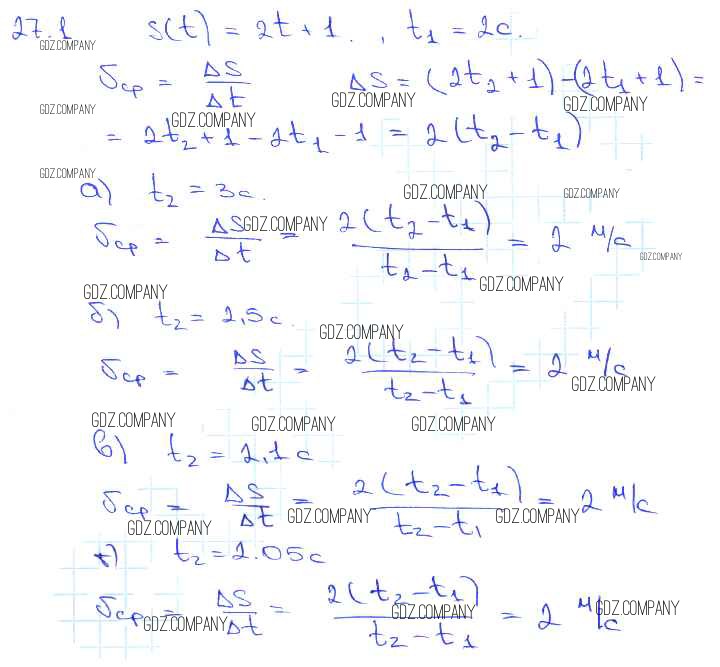 27.1 s(t) = 2t + 1. , t₁ = 2c.
GDZ.COMPANY
υср = ΔS/Δt ΔS = (2t₂ + 1) - (2t₁ + 1) =
GDZ.COMPANY GDZ.COMPANY GDZ.COMPANY GDZ.COMPANY
= 2t₂ + 1 - 2t₁ - 1 = 2(t₂ - t₁)
GDZ.COMPANY GDZ.COMPANY GDZ.COMPANY
а) t₂ = 3c.
υср = ΔS/Δt = 2(t₂ - t₁)/(t₂ - t₁) = 2 м/с
GDZ.COMPANY GDZ.COMPANY
GDZ.COMPANY GDZ.COMPANY
б) t₂ = 2,5c.
GDZ.COMPANY
υср = ΔS/Δt = 2(t₂ - t₁)/(t₂ - t₁) = 2 м/с
GDZ.COMPANY
GDZ.COMPANY GDZ.COMPANY GDZ.COMPANY
в) t₂ = 2,1c
υср = ΔS/Δt = 2(t₂ - t₁)/(t₂ - t₁) = 2 м/с
GDZ.COMPANY GDZ.COMPANY GDZ.COMPANY
г) t₂ = 2.05c
υср = ΔS/Δt = 2(t₂ - t₁)/(t₂ - t₁) = 2 м/с
GDZ.COMPANY GDZ.COMPANY GDZ.COMPANY